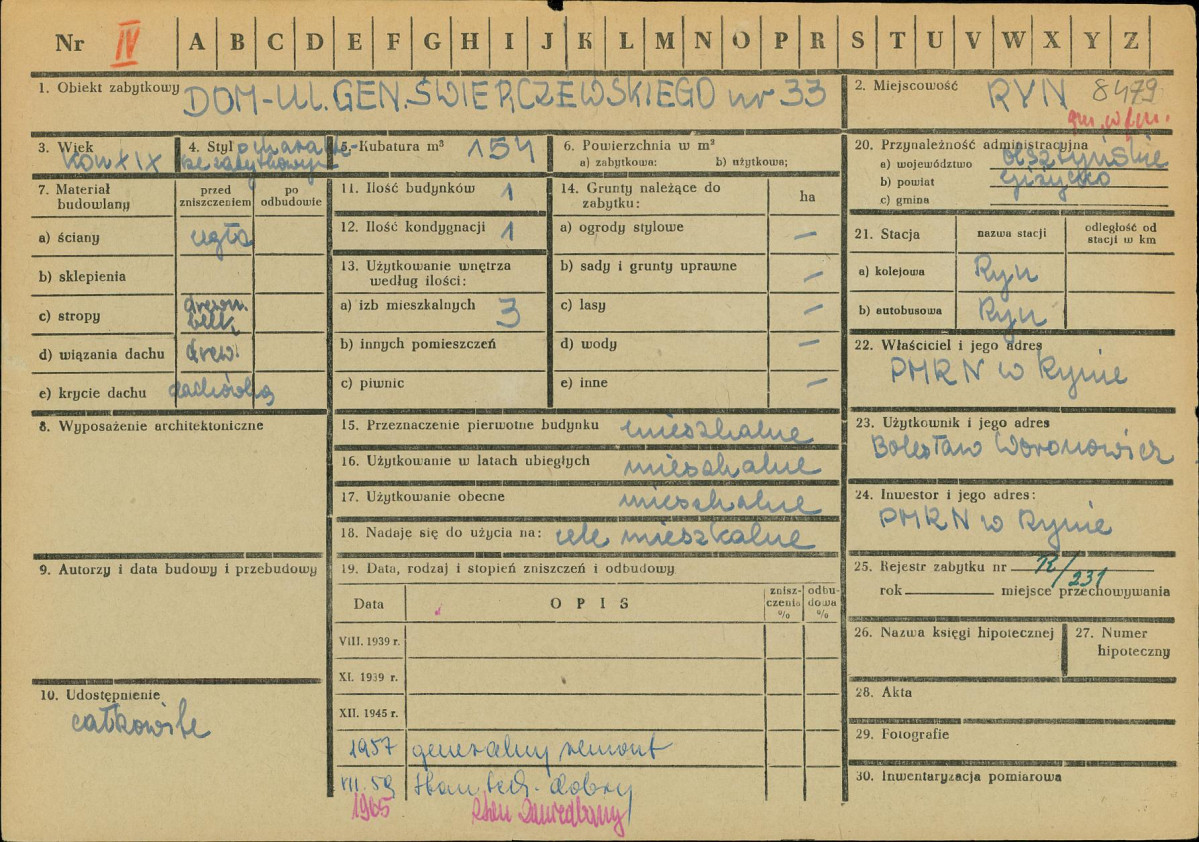 Nr IV A B C D E F G H I J K L M N O P R S T U V W X Y Z
1. Obiekt zabytkowy DOM-UL. GEN. ŚWIERCZEWSKIEGO nr 33
2. Miejscowość RYN 8479
gm. w/m.
3. Wiek kon XIX
4. Styl o charakte-
rze zabytkowym
5. Kubatura m³ 154
6. Powierzchnia w m²
a) zabytkowa: b) użytkowa;
7. Materiał
budowlany
przed
zniszczeniem
po
odbudowie
a) ściany cegła
b) sklepienia
c) stropy drewn.
belk
d) wiązania dachu drew.
e) krycie dachu dachówka
8. Wyposażenie architektoniczne
9. Autorzy i data budowy i przebudowy
10. Udostępnienie
całkowite
11. Ilość budynków 1
12. Ilość kondygnacji 1
13. Użytkowanie wnętrza
według ilości:
a) izb mieszkalnych 3
b) innych pomieszczeń
c) piwnic
14. Grunty należące do
zabytku:
ha
a) ogrody stylowe —
b) sady i grunty uprawne —
c) lasy —
d) wody —
e) inne —
15. Przeznaczenie pierwotne budynku mieszkalne
16. Użytkowanie w latach ubiegłych mieszkalne
17. Użytkowanie obecne mieszkalne
18. Nadaje się do użycia na: cele mieszkalne
19. Data, rodzaj i stopień zniszczeń i odbudowy
Data
OPIS
znisz-
czenia
%
odbu-
dowa
%
VIII. 1939 r.
XI. 1939 r.
XII. 1945 r.
1957 generalny remont
VII. 59 stan tech. dobry
1965 stan zaniedbany
20. Przynależność administracyjna
a) województwo olsztyńskie
b) powiat Giżycko
c) gmina
21. Stacja
nazwa stacji
odległość od
stacji w km
a) kolejowa Ryn
b) autobusowa Ryn
22. Właściciel i jego adres
PMRN w Rynie
23. Użytkownik i jego adres
Bolesław Woronowicz
24. Inwestor i jego adres:
PMRN w Rynie
25. Rejestr zabytku nr R/231
rok miejsce przechowywania
26. Nazwa księgi hipotecznej
27. Numer
hipoteczny
28. Akta
29. Fotografie
30. Inwentaryzacja pomiarowa